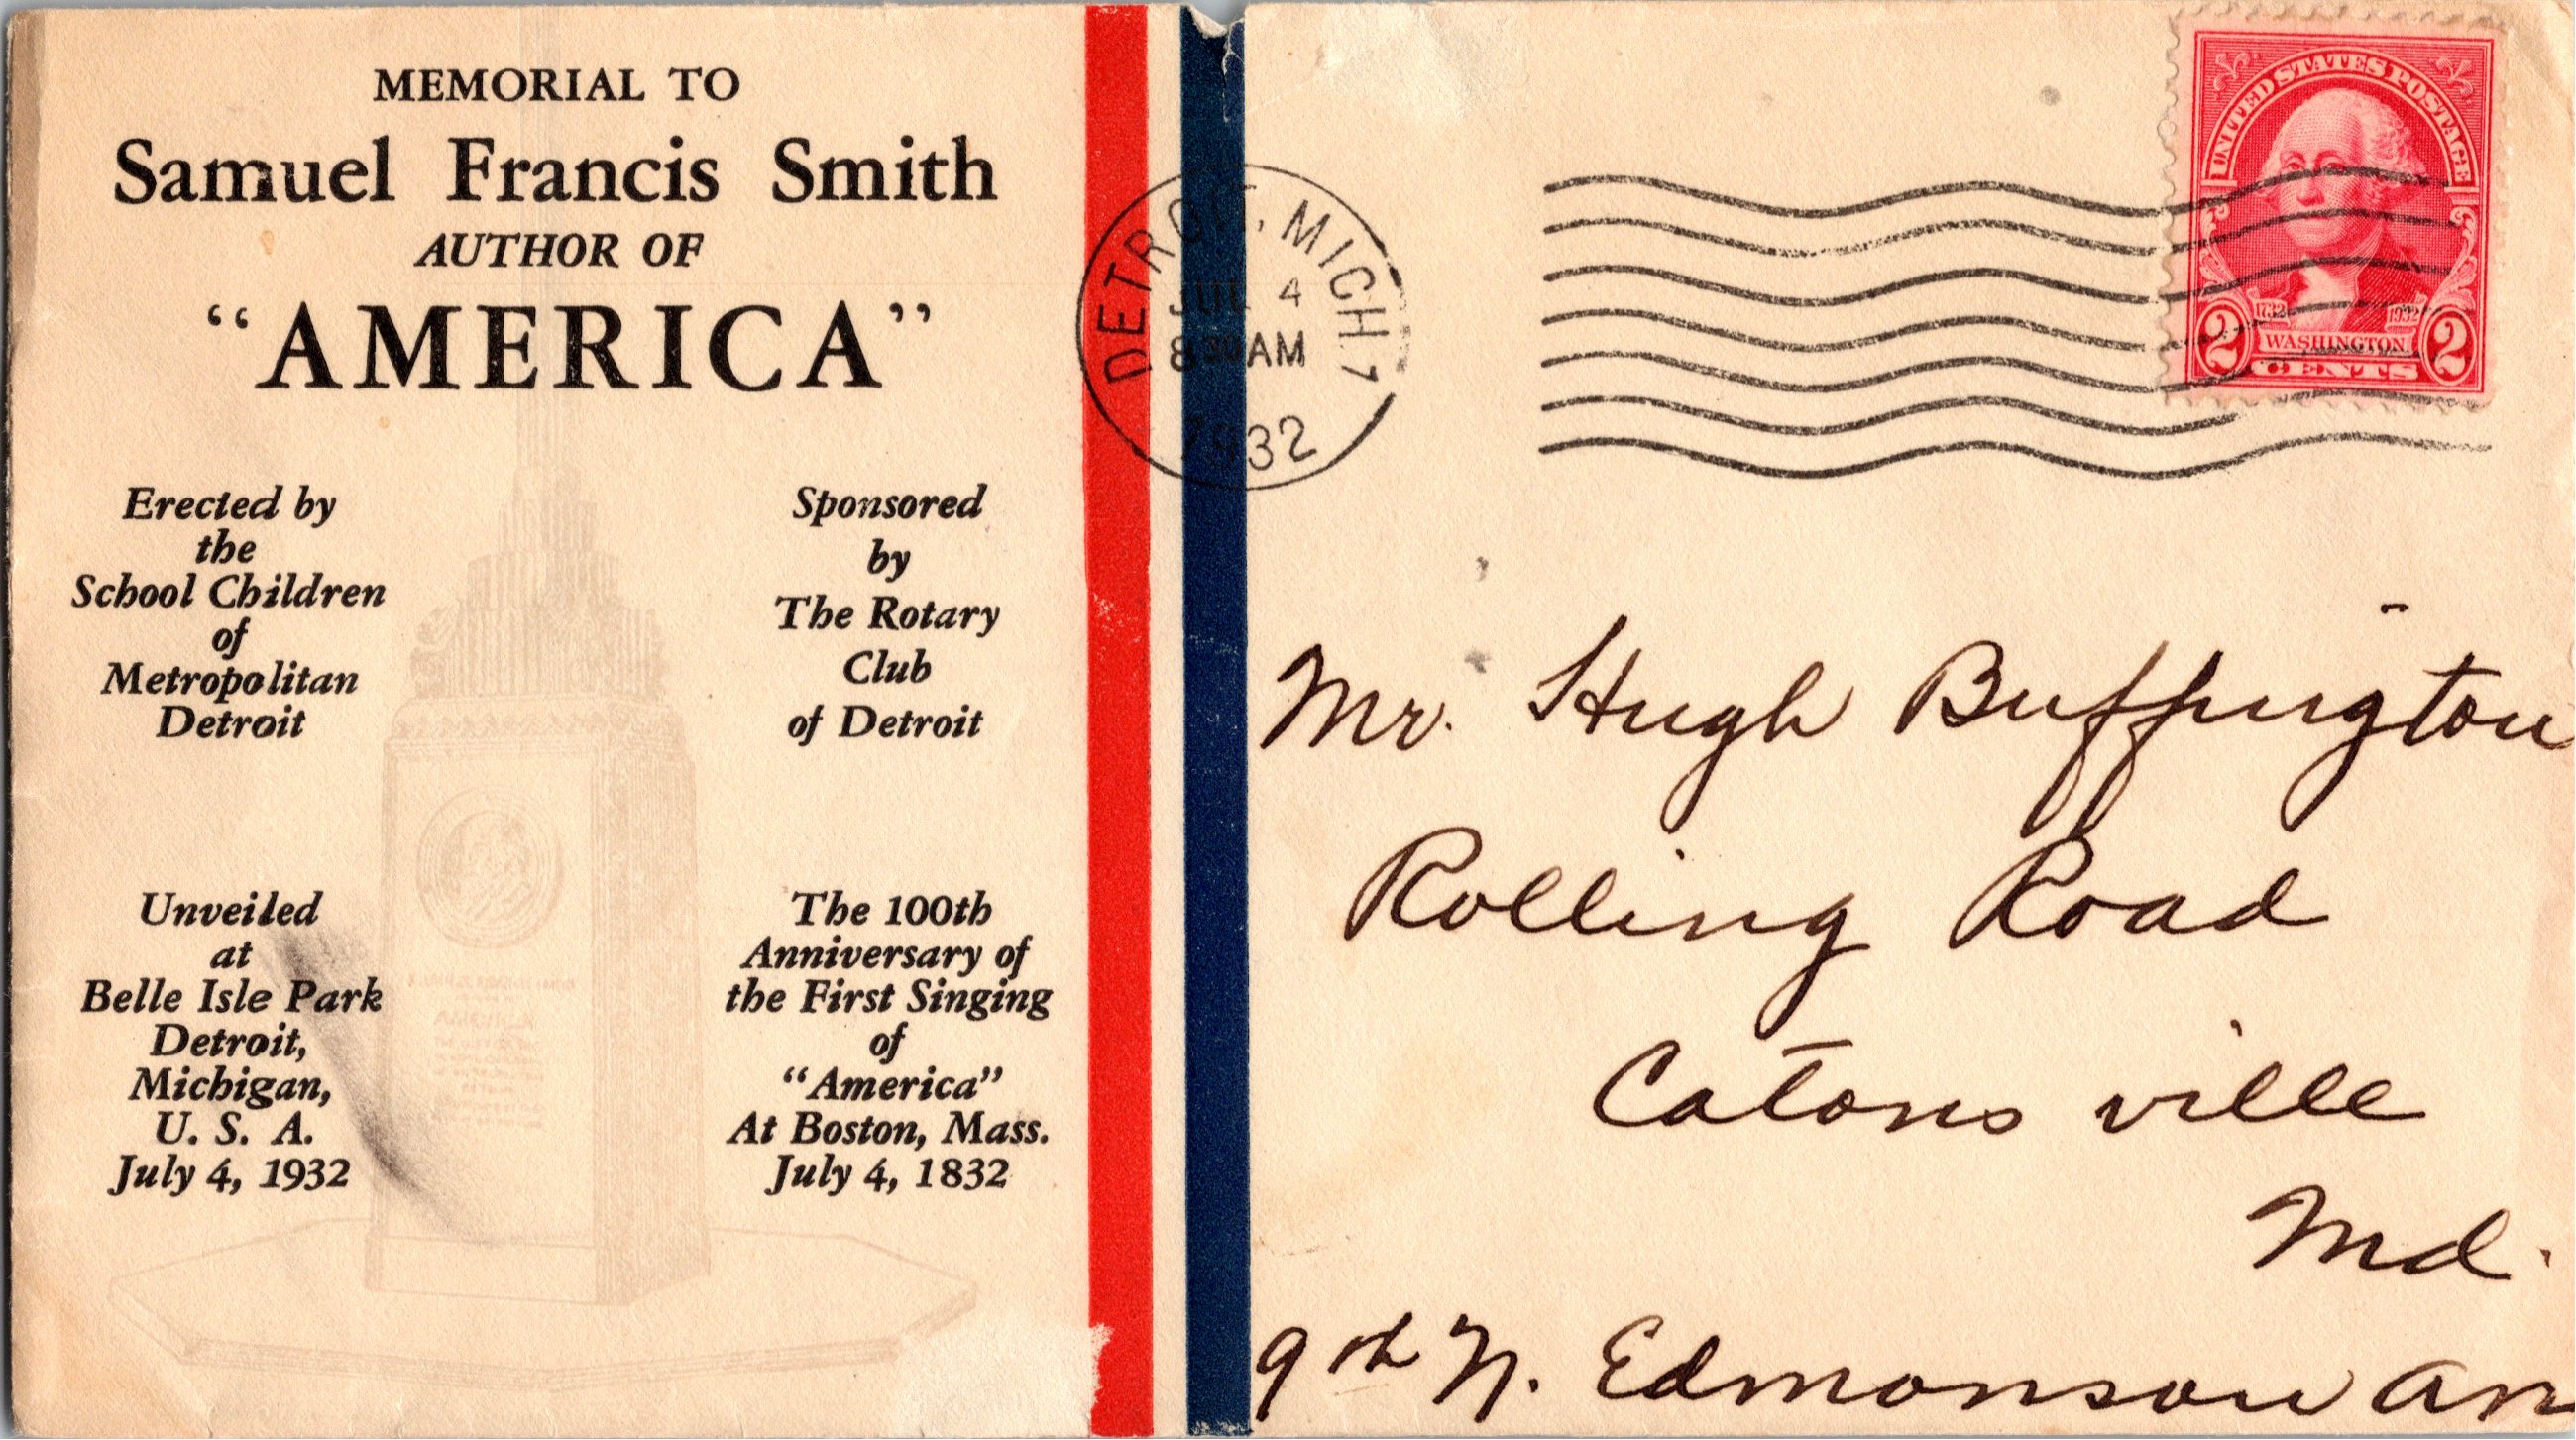 MEMORIAL TO
Samuel Francis Smith
AUTHOR OF
“AMERICA”
Erected by
the
School Children
of
Metropolitan
Detroit
Sponsored
by
The Rotary
Club
of Detroit
Unveiled
at
Belle Isle Park
Detroit,
Michigan,
U. S. A.
July 4, 1932
The 100th
Anniversary of
the First Singing
of
“America”
At Boston, Mass.
July 4, 1832
DETROIT, MICH.
JUL 4
8 30 AM
1932
UNITED STATES POSTAGE
1732 1932
2 WASHINGTON 2
CENTS
Mr. Hugh Buffington
Rolling Road
Catons ville
Md.
9th N. Edmonson